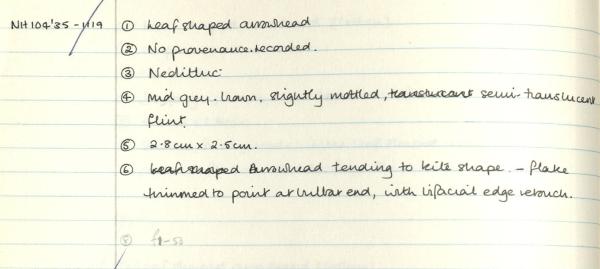 NH104'35-1119 ① Leaf shaped arrowhead
② No provenance recorded.
③ Neolithic.
④ Mid grey-brown, slightly mottled, translucent semi-translucent
flint.
⑤ 2.8cm x 2.5cm.
⑥ Leaf shaped Arrowhead tending to kite shape. - flake
trimmed to point at bulbar end, with bifacial edge retouch.